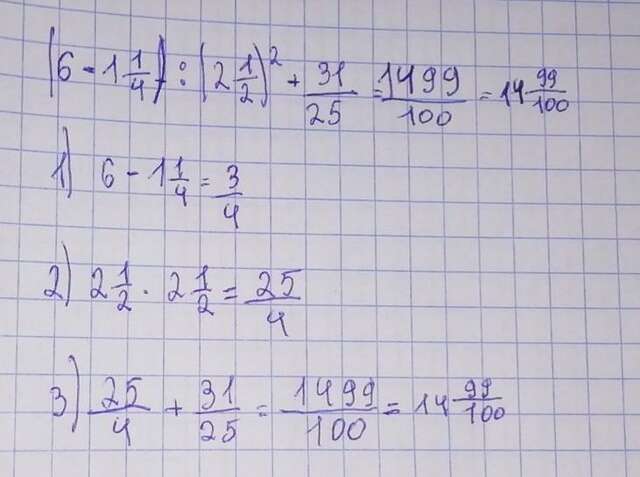 (6 - 1 1/4) : (2 1/2)² + 31/25 = 1499/100 = 14 99/100
1) 6 - 1 1/4 = 3/4
2) 2 1/2 · 2 1/2 = 25/4
3) 25/4 + 31/25 = 1499/100 = 14 99/100